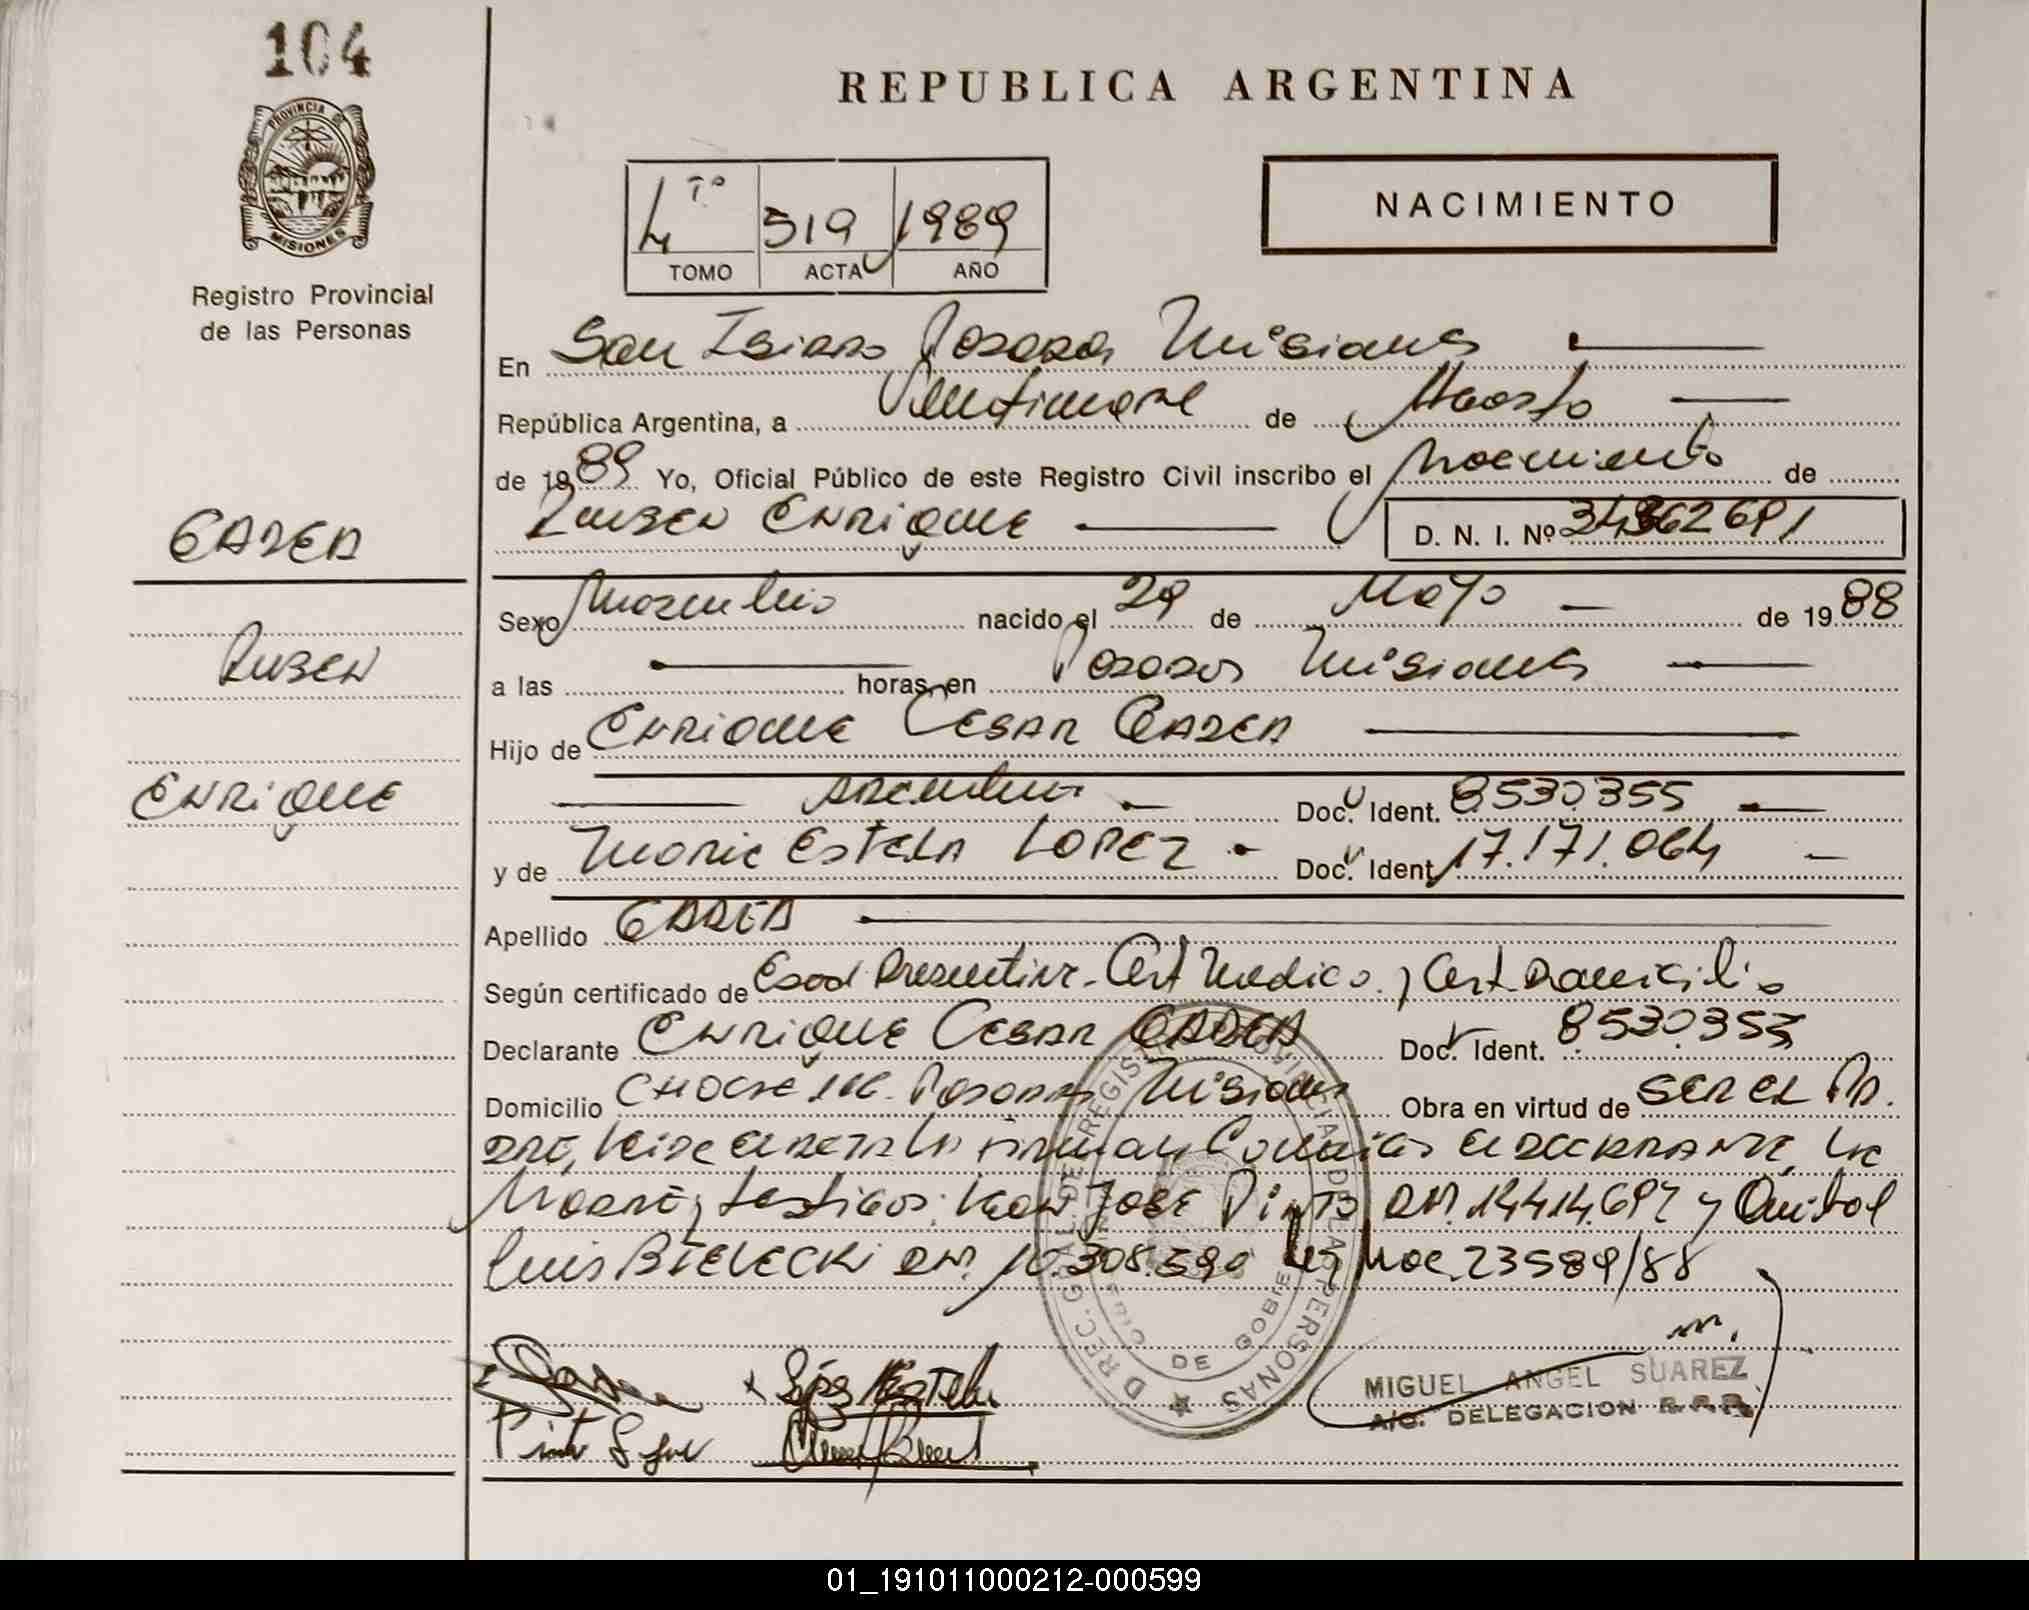 104
REPUBLICA ARGENTINA
PROVINCIA DE
MISIONES
Registro Provincial
de las Personas
NACIMIENTO
4 Tº 519 1989
TOMO ACTA AÑO
En San Isidro Posadas Misiones
República Argentina, a Veintinueve de Agosto
de 1989 Yo, Oficial Público de este Registro Civil inscribo el Nacimiento de
Ruben Enrique D. N. I. Nº
Sexo Masculino nacido el 29 de Mayo de 1988
a las horas, en Posadas Misiones
Hijo de Enrique Cesar
Argentino Doc. Ident. 8.530.355
y de Maria Estela Lopez Doc. Ident. 17.171.064
Apellido
Según certificado de Edad Presuntiva - Cert Medico y Cert. Domicilio
Declarante Enrique Cesar Doc. Ident. 8.530.353
Domicilio Posadas Misiones Obra en virtud de ser el Pa
dre, Firman el declarante, la
Madre y testigos: Juan Jose Pinto DNI. 14.414.697 y Anibal
Luis Bielecki DNI. 10.308.590 Ley Nac. 23589/88
DIREC. GRAL. DE REGISTRO PROVINCIAL DE LAS PERSONAS
DE GOBIE
MIGUEL ANGEL SUAREZ
A/C. DELEGACION R.P.P.
Ruben
Enrique
01_191011000212-000599